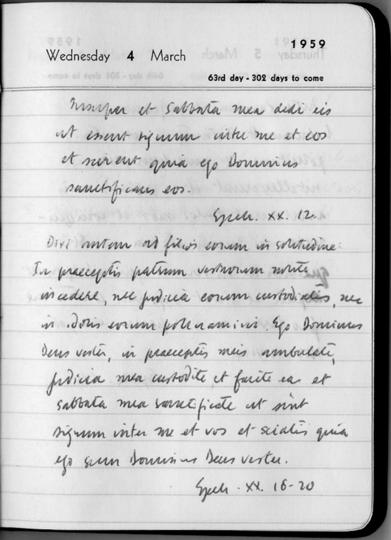 1959
Wednesday 4 March
63rd day - 302 days to come
Insuper et Sabbata mea dedi eis
ut essent signum inter me et eos
et scirent quia ego Dominus
sanctificans eos.
Ezech. XX. 12
Dixi autem ad filios eorum in solitudine:
In praeceptis patrum vestrorum nolite
incedere, nec judicia eorum custodiatis, nec
in idolis eorum polluamini. Ego Dominus
Deus vester, in praeceptis meis ambulate,
judicia mea custodite et facite ea et
sabbata mea sanctificate ut sint
signum inter me et vos et sciatis quia
ego sum Dominus Deus vester.
Ezech. XX. 18-20